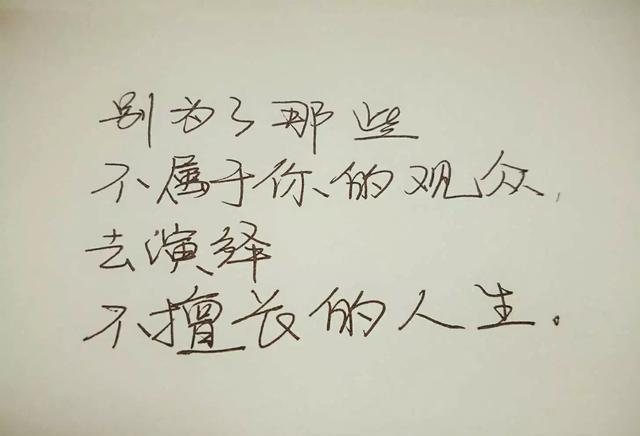 别为了那些
不属于你的观众,
去演绎
不擅长的人生。